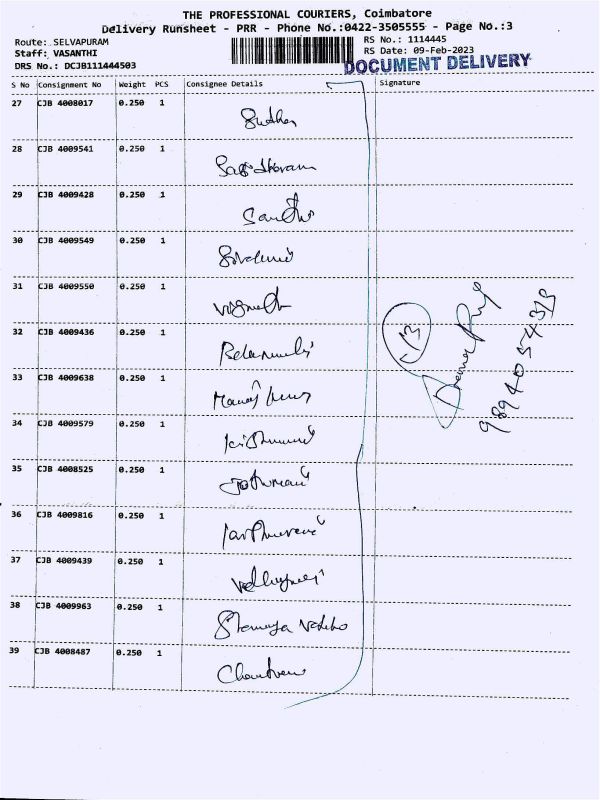 THE PROFESSIONAL COURIERS, Coimbatore
Delivery Runsheet - PRR - Phone No.:0422-3505555 - Page No.:3
Route: SELVAPURAM
RS No.: 1114445
Staff: VASANTHI
RS Date: 09-Feb-2023
DRS No.: DCJB111444503
DOCUMENT DELIVERY
S No Consignment No Weight PCS Consignee Details Signature
27 CJB 4008017 0.250 1 Sudha
28 CJB 4009541 0.250 1
29 CJB 4009428 0.250 1 Santhi
30 CJB 4009549 0.250 1
31 CJB 4009550 0.250 1 Vignesh
32 CJB 4009436 0.250 1
33 CJB 4009638 0.250 1
34 CJB 4009579 0.250 1
35 CJB 4008525 0.250 1
36 CJB 4009816 0.250 1
37 CJB 4009439 0.250 1
38 CJB 4009963 0.250 1
39 CJB 4008487 0.250 1
13
9894054313